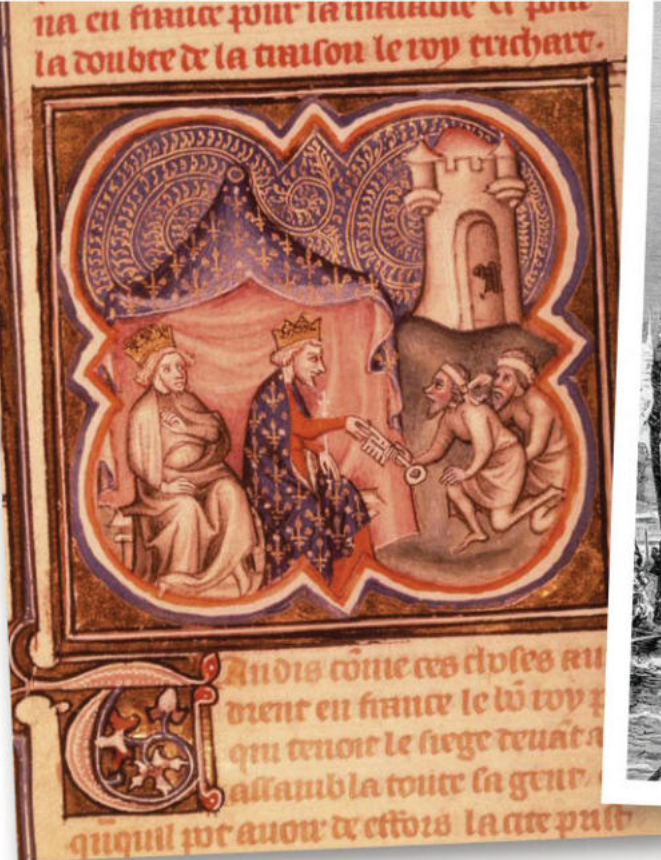 na en france pour la maladie et pour
la doubte de la traison le roy trichart.
Tandis cõme ces choses au
drent en france le bõ roy p
qui tenoit le siege deuãt a
assambla toute sa gent
quiquil pot auoir de effors la cite prist